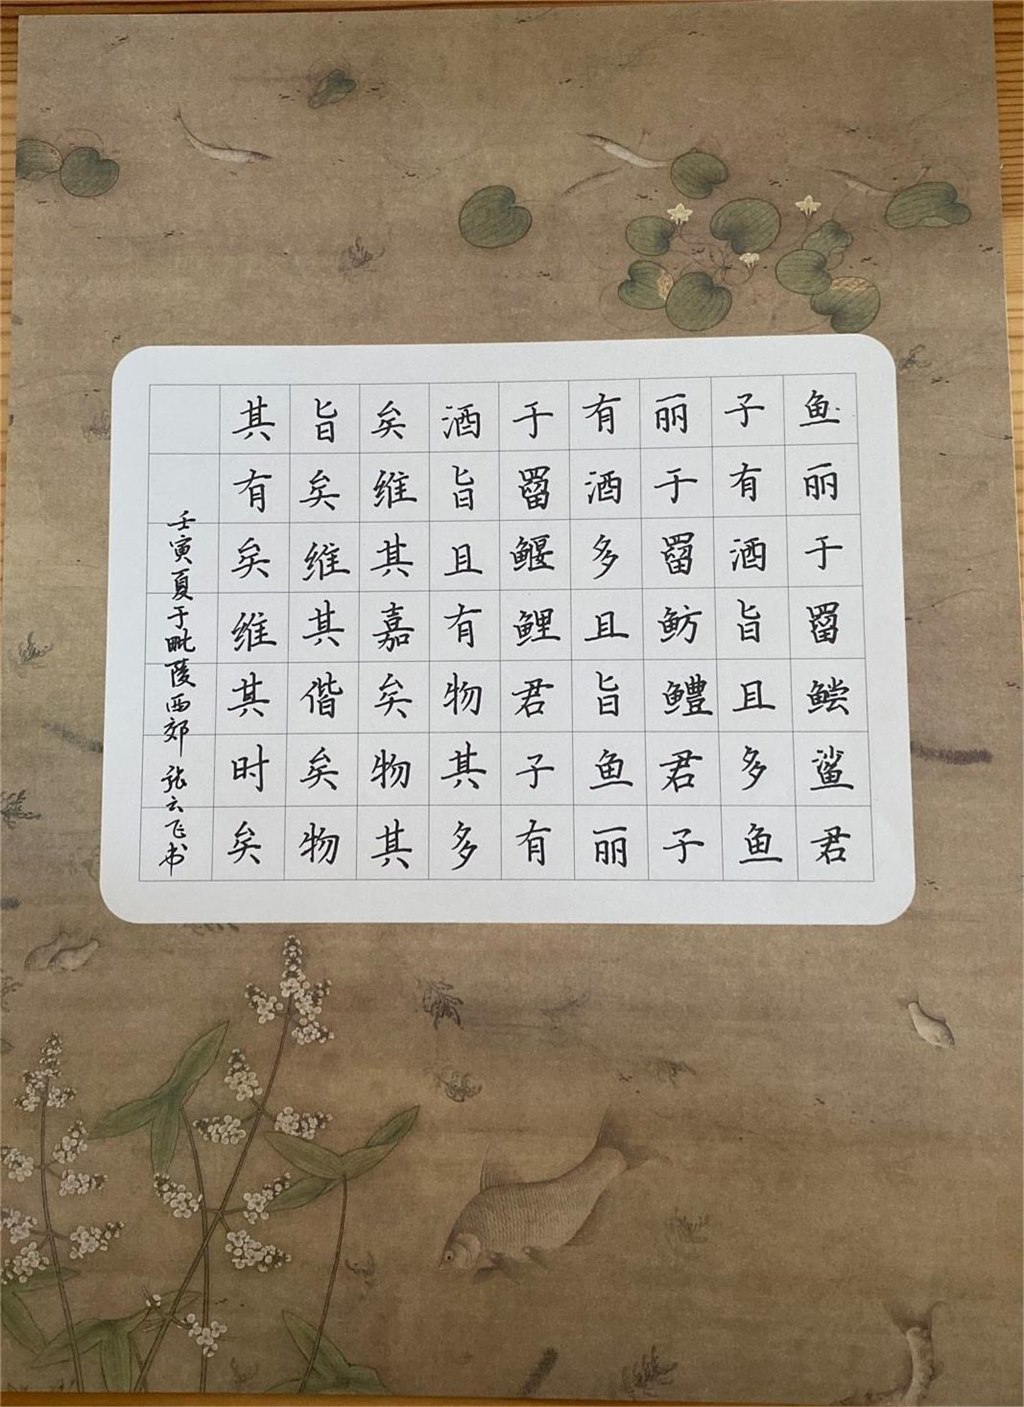 鱼丽于罶鲿鲨君
子有酒旨且多鱼
丽于罶鲂鳢君子
有酒多且旨鱼丽
于罶鰋鲤君子有
酒旨且有物其多
矣维其嘉矣物其
旨矣维其偕矣物
其有矣维其时矣
壬寅夏于毗陵西郊 张云飞书